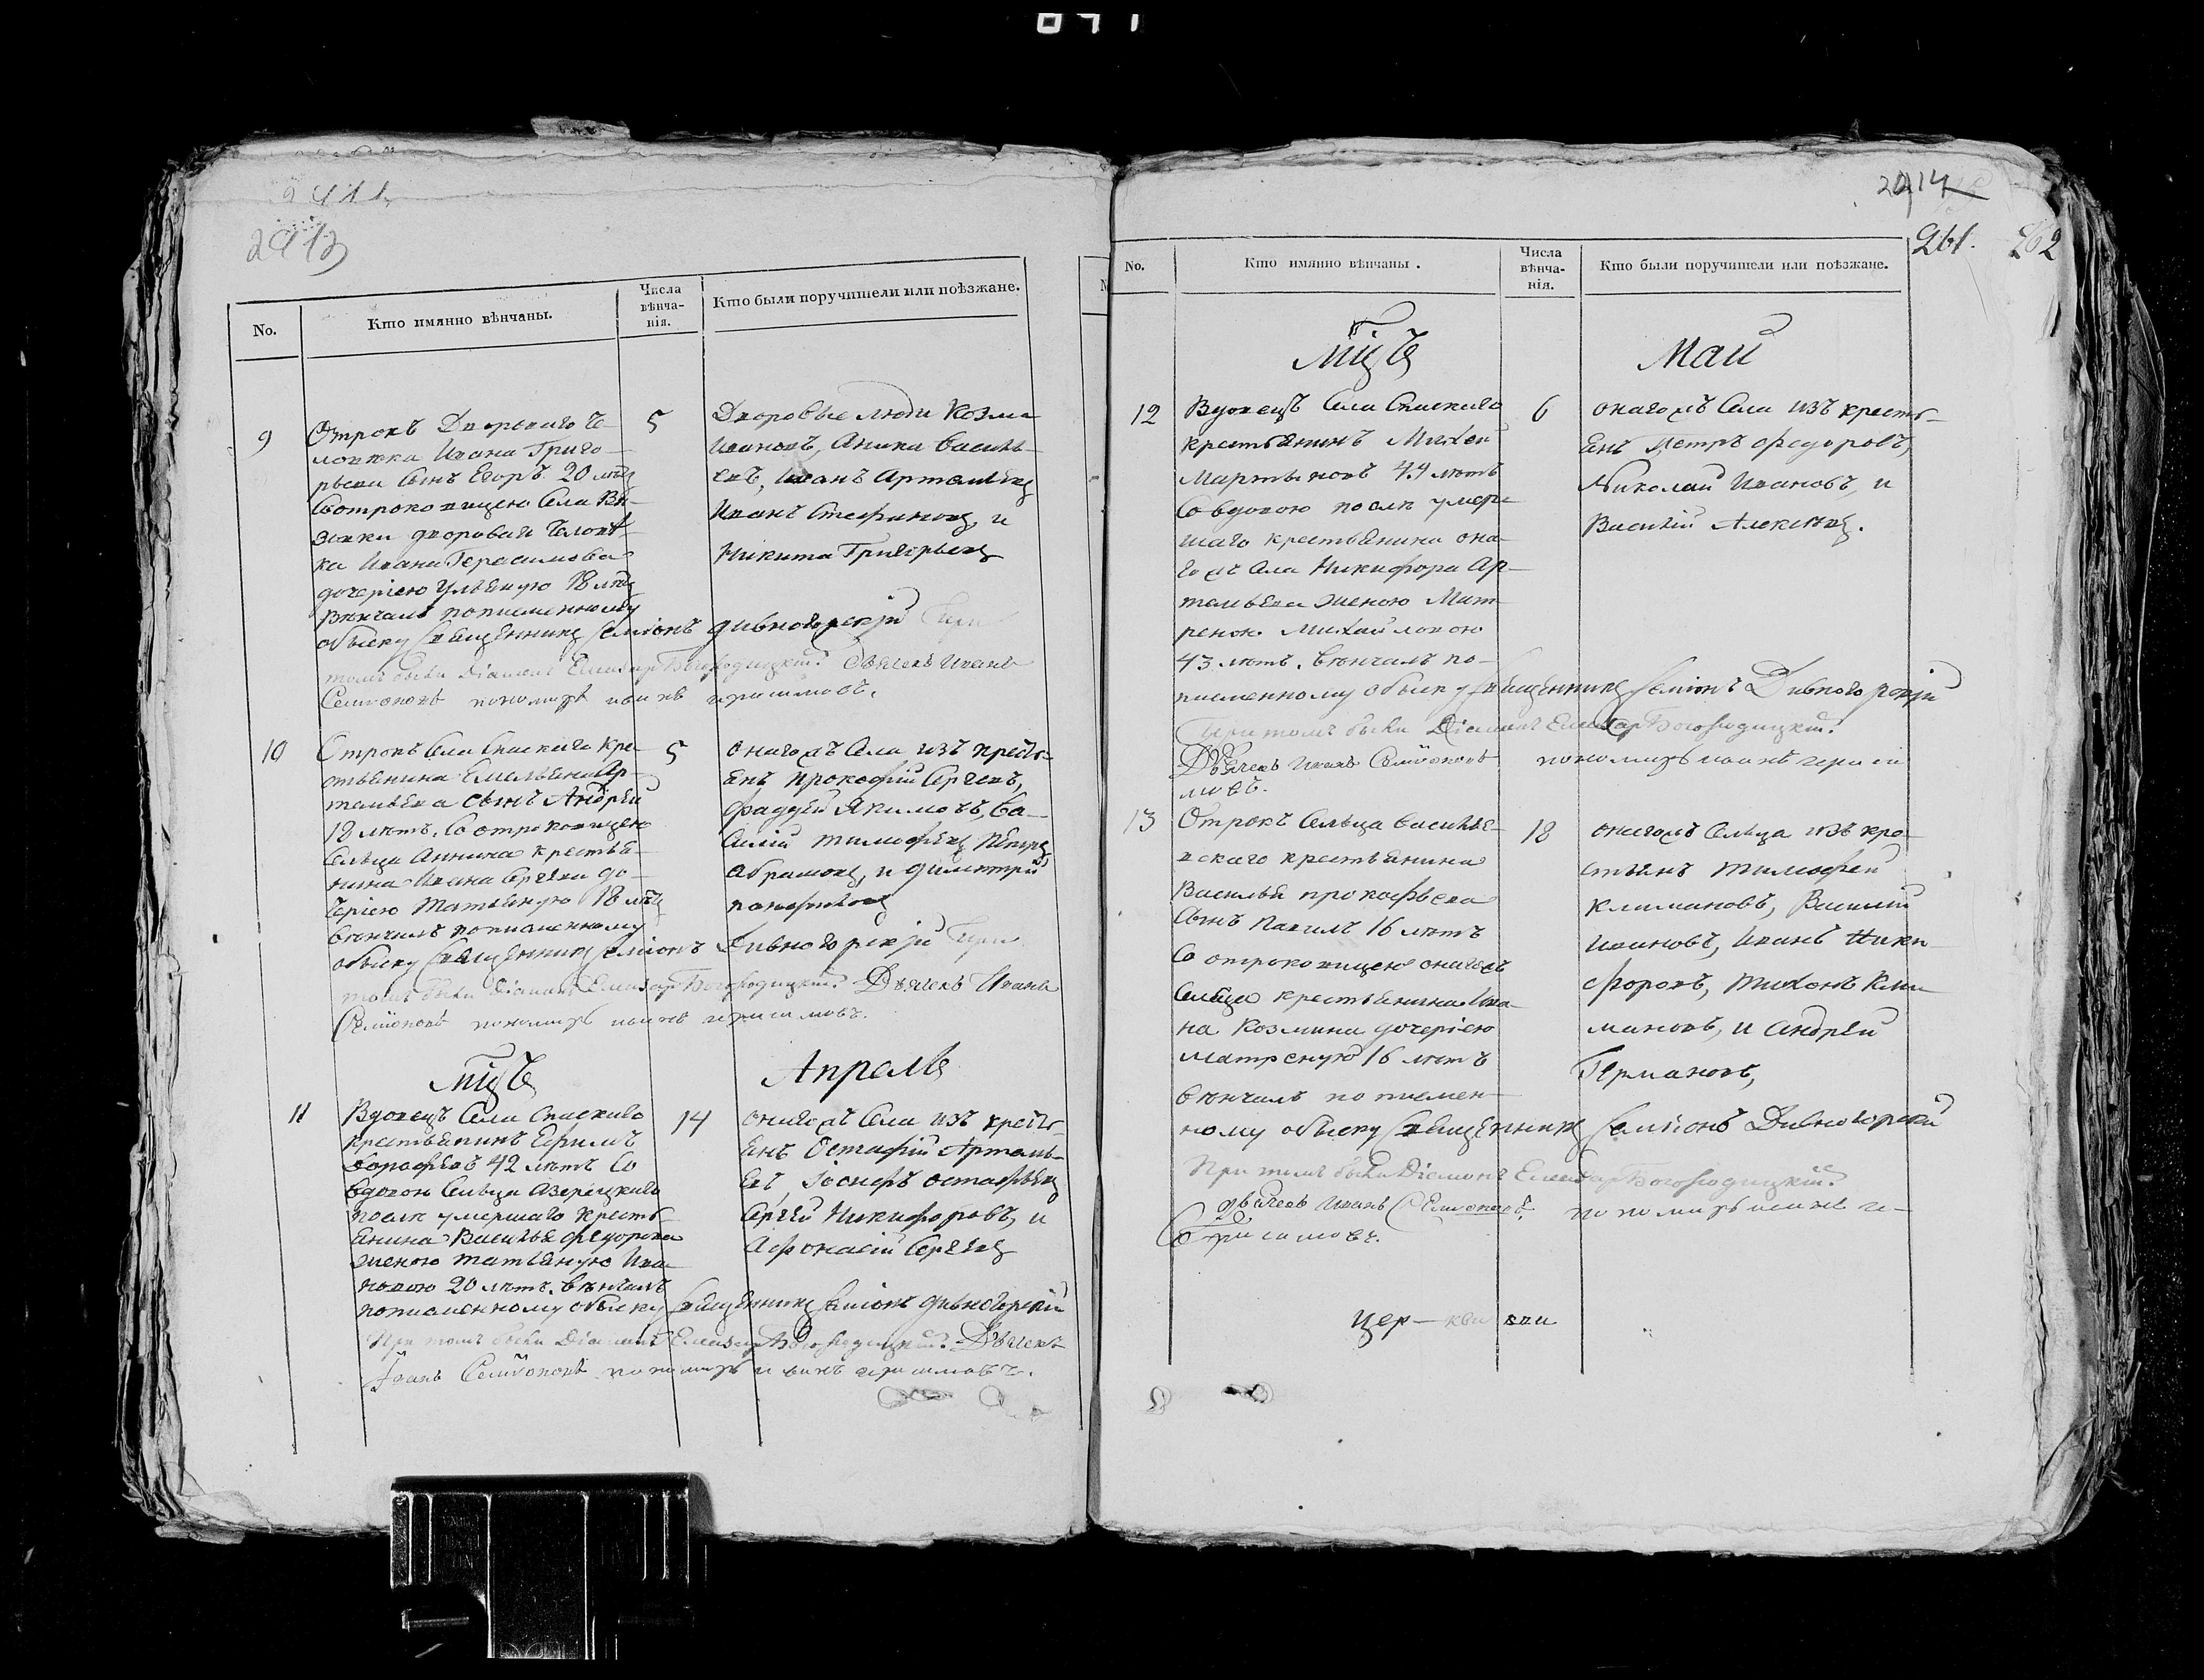 2913
No.
Кто имянно вѣнчаны.
Числа вѣнча-нія.
Кто были поручители или поѣзжане.
9
Отрокъ Дворового че-
ловека Ивана Григо-
рьева Сынъ Егоръ 20 лѣтъ
Соотроковицею Села
дворовага Челове-
ка Ивана Герасимова
дочерiею Ульяною 18 лѣтъ
Вѣнчалъ пописменному
обыску Священникъ Семіонъ Дивногорскій При
томъ были Діаконъ Елиазар Богородицкій. Дьячекъ Иванъ
Семионовъ пономарь
5
Дворовые люди Козма
Ивановъ, Аника Василь-
евъ, Иванъ Артемьевъ
Иванъ Стефановъ, и
Никита Григорьевъ
10
Отрокъ Села Спаскаго кре-
стьянина Емельяна Ар-
тамьева сынъ Андрей
18 лѣтъ. Со отроковицею
Сельца Аннина крестья-
нина Ивана Сергѣева до-
черiею Татьяною 18 лѣтъ
вѣнчалъ пописменному
обыску Священникъ Семіонъ Дивногорскій При
томъ были Діаконъ Елиазар Богородицкій. Дьячекъ Иванъ
Семіоновъ пономарь
5
онагожъ Села изъ кресть-
янъ Прокофій Сергеевъ,
Фаддей Якимовъ, Ва-
силій Тимофѣевъ, Петръ
Абрамовъ, и Димитрій
11
Мцъ
Апрель
Вдовецъ Села Спаскаго
крестьянинъ Ефимъ
42 лѣтъ Со
вдовою Сельца Азерецкаго
послѣ умершаго кресть-
янина Василья Федорова
женою Татьяною Ива-
новою 20 лѣтъ. Вѣнчалъ
пописменному обыску Священникъ Семіонъ Дивногорскій
При томъ были Діаконъ Елиазар Богородицкій. Дьячекъ
Іванъ Семіоновъ пономарь
14
онагожъ Села изъ кресть-
янъ Остафій Артамь-
евъ, Іосифъ Остафьевъ
Сергѣй Никифоровъ, и
Афонасій Сергѣевъ
2914
261.
262
No.
Кто имянно вѣнчаны.
Числа вѣнча-нія.
Кто были поручители или поѣзжане.
Мцъ
Май
12
Вдовецъ Села Спаскаго
крестьянинъ Михей
Мартыновъ 44 лѣтъ
Со вдовою послѣ умер-
шаго крестьянина она-
гожъ Села Никифора Ар-
тамьева женою Мат-
реною Михайловою
43 лѣтъ. Вѣнчалъ по-
писменному обыску Священникъ Семіонъ Дивногорскій
При томъ были Діаконъ Елиазар Богородицкій.
Дьячекъ Иванъ Семіоновъ пономарь
6
онагожъ Села изъ кресть-
янъ Петръ Федоровъ,
Николай Ивановъ, и
Василій Алексѣевъ.
13
Отрокъ Сельца Василье-
вскаго крестьянина
Василья Прокофьева
Сынъ Павилъ 16 лѣтъ
Со отроковицею онагожъ
Сельца крестьянина Ива-
на Козмина дочерiею
Матреною 16 лѣтъ
вѣнчалъ по писмен-
ному обыску Священникъ Семіонъ Дивногорскій
При томъ были Діаконъ Елиазар Богородицкій.
Дьячекъ Иванъ Семіоновъ. пономарь
18
онагожъ Сельца изъ кре-
стьянъ Тимофей
Климановъ, Василій
Ивановъ, Иванъ Ники-
форовъ, Тихонъ Кли-
мановъ, и Андрей
Германовъ,
цер-